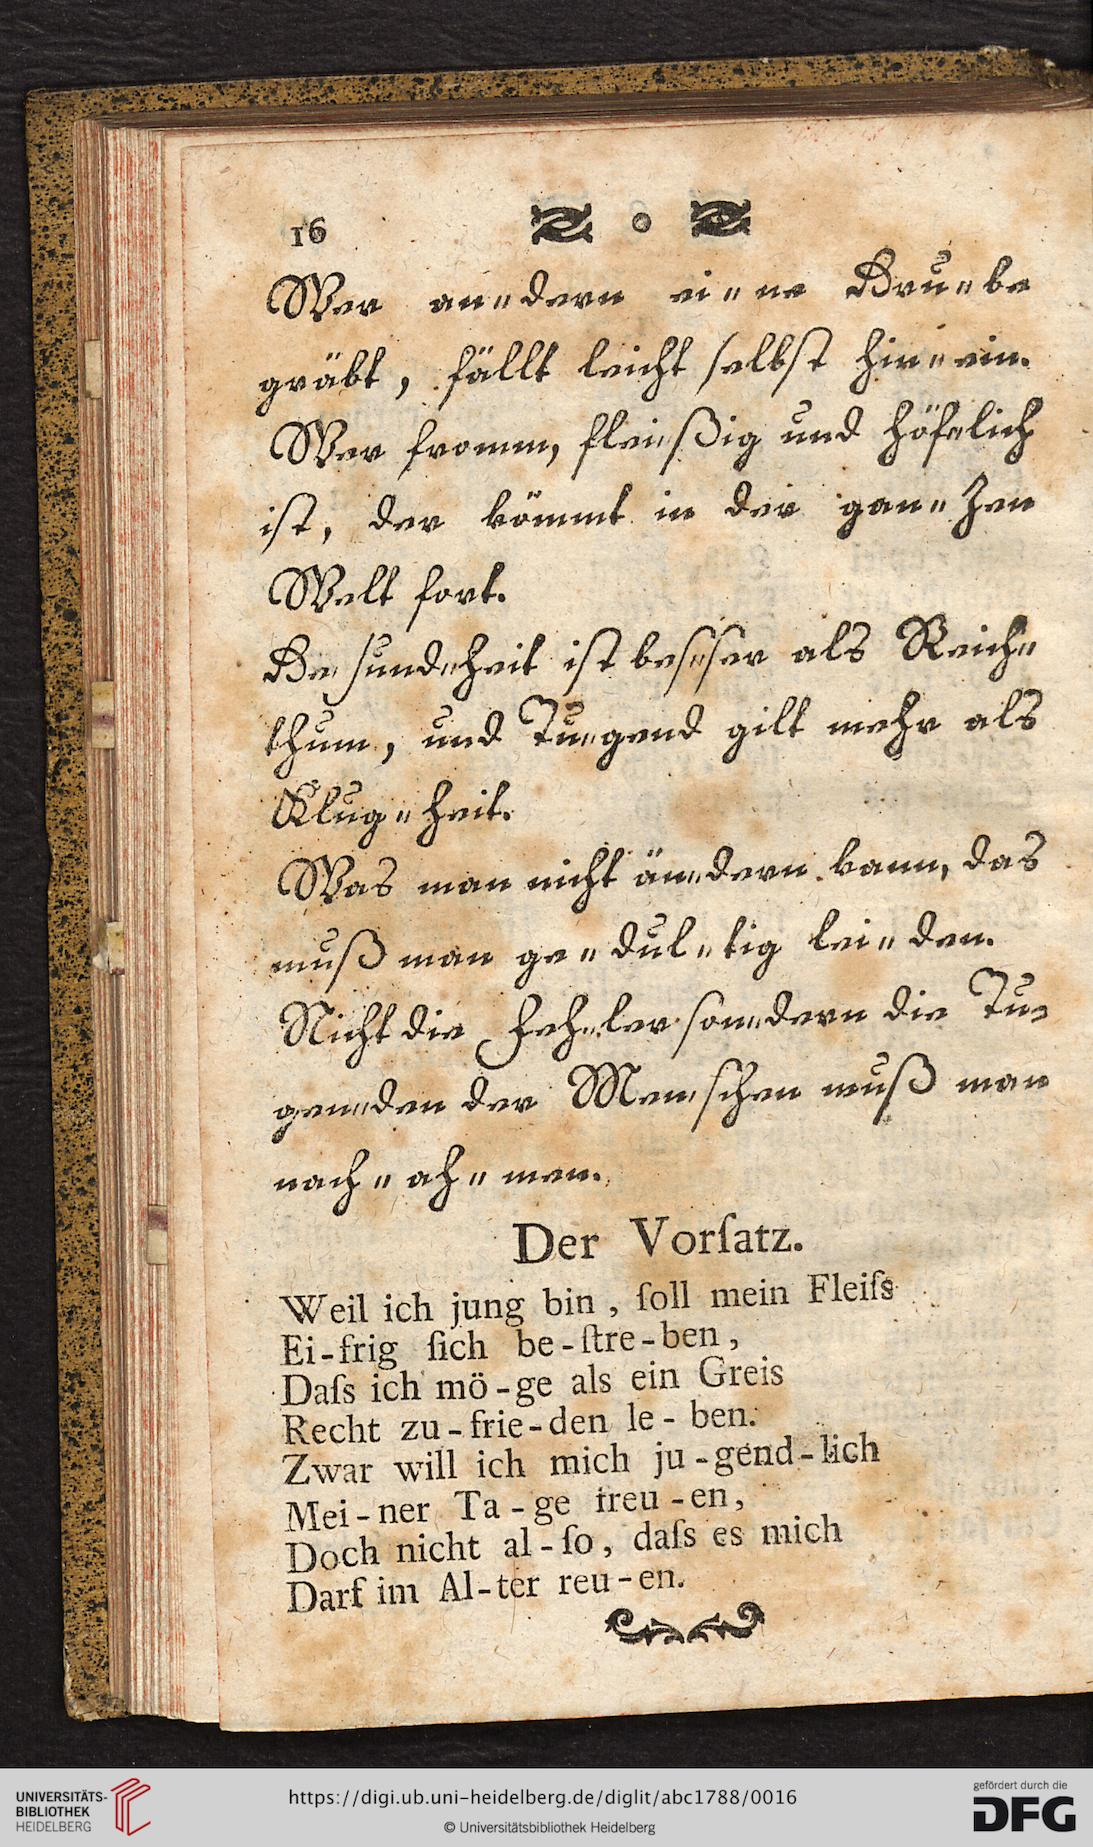 16
Wer an⸗dern ei⸗ne Gru⸗be
gräbt, fällt leicht selbst hin⸗ein.
Wer fromm, flei⸗ßig und höf⸗lich
ist, der kömmt in der gan⸗zen
Welt fort.
Ge⸗sund⸗heit ist bes⸗ser als Reich⸗
thum, und Tu⸗gend gilt mehr als
Klug⸗heit.
Was man nicht än⸗dern kann, das
muß man ge⸗dul⸗tig lei⸗den.
Nicht die Feh⸗ler son⸗dern die Tu⸗
gen⸗den der Men⸗schen muß man
nach⸗ah⸗men.
Der Vorſatz.
Weil ich jung bin, ſoll mein Fleiſs
Ei-frig ſich be-ſtre-ben,
Daſs ich mö-ge als ein Greis
Recht zu-frie-den le-ben.
Zwar will ich mich ju-gend-lich
Mei-ner Ta-ge freu-en,
Doch nicht al-ſo, daſs es mich
Darf im Al-ter reu-en.
UNIVERSITÄTS-
BIBLIOTHEK
HEIDELBERG
https://digi.ub.uni-heidelberg.de/diglit/abc1788/0016
© Universitätsbibliothek Heidelberg
gefördert durch die
DFG